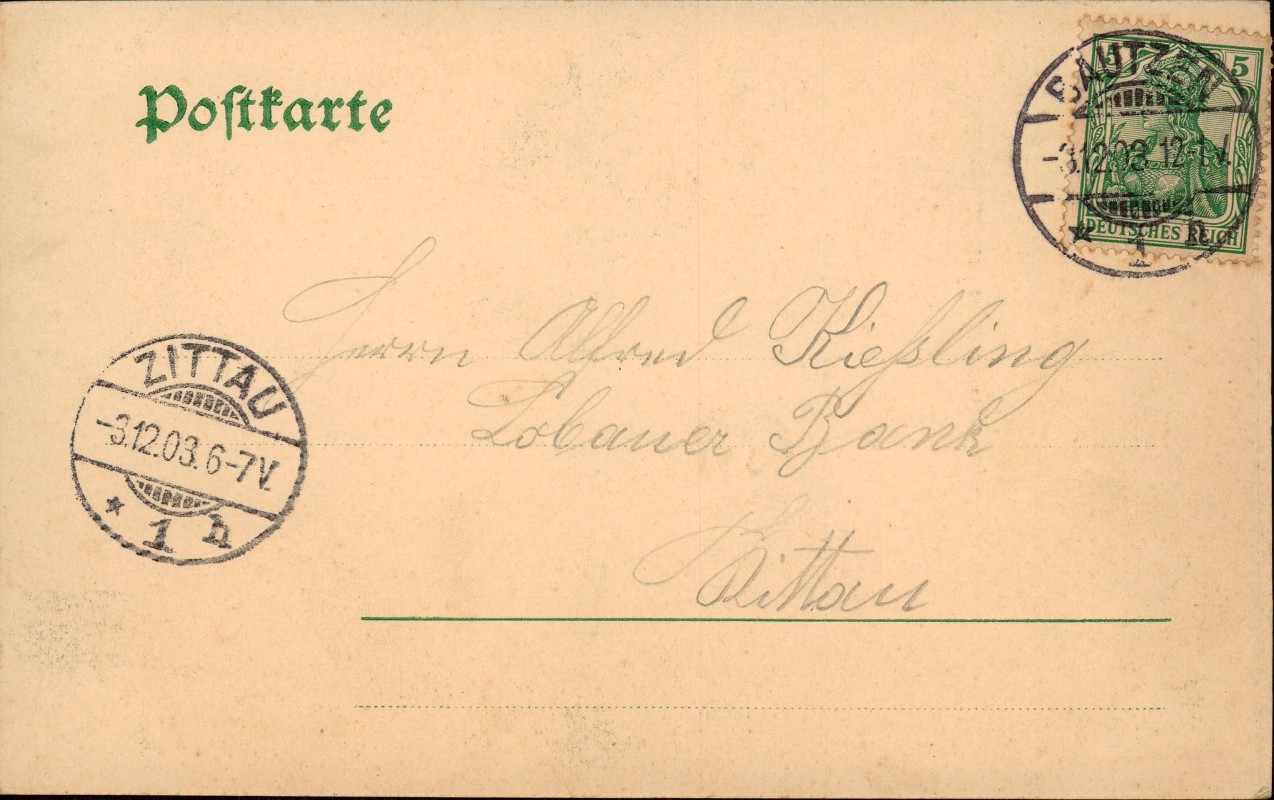 Postkarte
5 5
DEUTSCHES REICH
BAUTZEN
-3.12.03. 12-1 V.
* 1 h
Herrn Alfred Kießling
Lobauer Bank
Zittau
ZITTAU
-3.12.03. 6-7V.
* 1 h